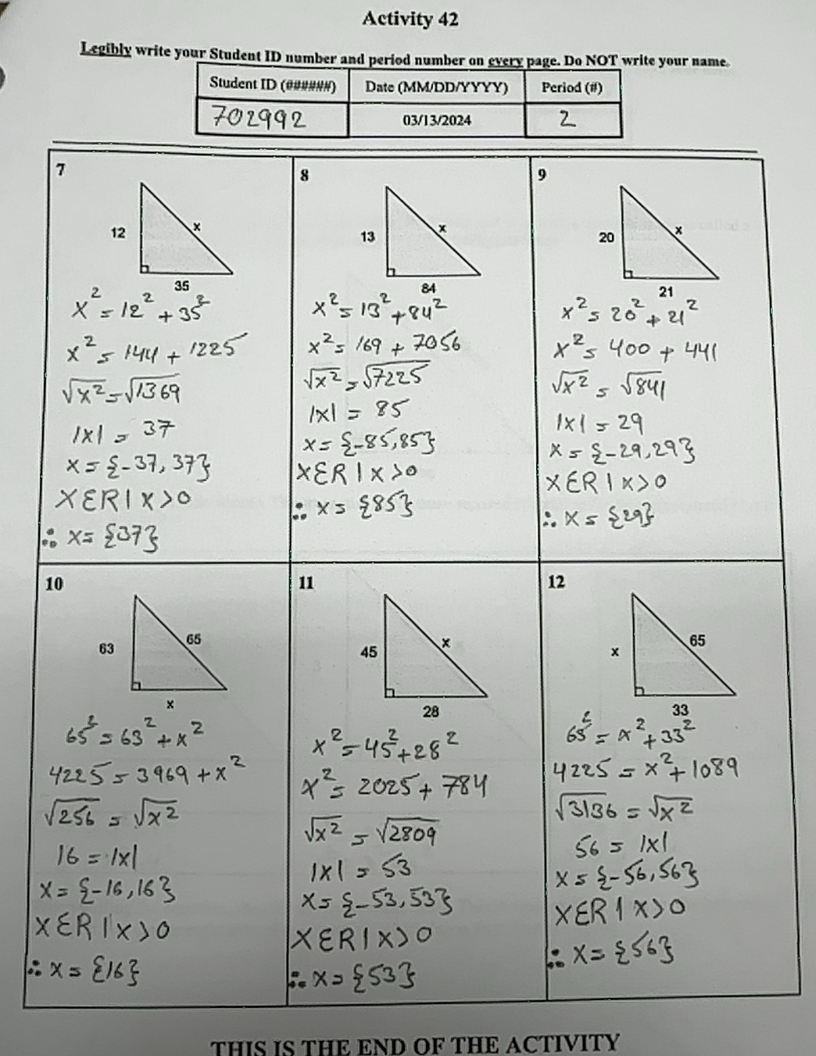 Activity 42
Legibly write your Student ID number and period number on every page. Do NOT write your name.
Student ID (######) Date (MM/DD/YYYY) Period (#)
702992 03/13/2024 2
7
12
x
35
x² = 12² + 35²
x² = 144 + 1225
√x² = √1369
|x| = 37
x = {-37, 37}
XƐR | x > 0
∴ x = {37}
8
13
x
84
x² = 13² + 84²
x² = 169 + 7056
√x² = √7225
|x| = 85
x = {-85, 85}
XƐR | x > 0
∴ x = {85}
9
20
x
21
x² = 20² + 21²
x² = 400 + 441
√x² = √841
|x| = 29
x = {-29, 29}
XƐR | x > 0
∴ x = {29}
10
63
65
x
65² = 63² + x²
4225 = 3969 + x²
√256 = √x²
16 = |x|
x = {-16, 16}
XƐR | x > 0
∴ x = {16}
11
45
x
28
x² = 45² + 28²
x² = 2025 + 784
√x² = √2809
|x| = 53
x = {-53, 53}
XƐR | x > 0
∴ x = {53}
12
x
65
33
65² = x² + 33²
4225 = x² + 1089
√3136 = √x²
56 = |x|
x = {-56, 56}
XƐR | x > 0
∴ x = {56}
THIS IS THE END OF THE ACTIVITY